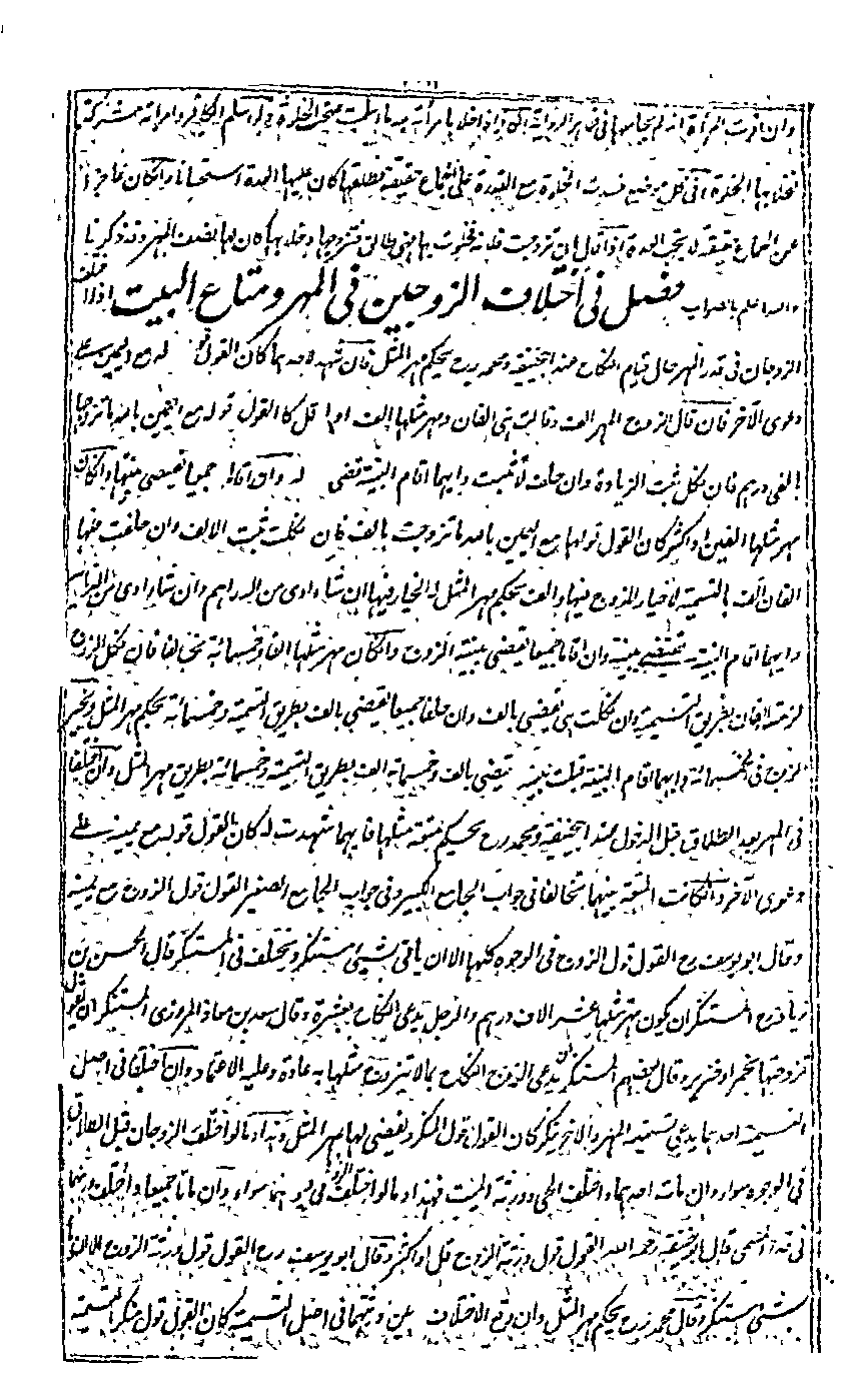 وان اقرت المرأة انه لم يجامعها فى ظاهر الرواية اذا خلا بامرأته ولو اسلم الكافر وامرأته مشركة
فخلا بها الخلوة فى كل موضع فسدت الخلوة مع القدرة على الجماع حقيقة فطلقها كان عليها العدة استحسانا وان كان عاجزا
عن الجماع حقيقة لا تجب العدة اذا قال ان تزوجت فلانة فخلوت بها فهى طالق فتزوجها وخلا بها كان لها نصف المهر وقد ذكرنا
والله اعلم بالصواب فصل فى اختلاف الزوجين فى المهر ومتاع البيت اذا اختلف
الزوجان فى قدر المهر حال قيام النكاح عند ابى حنيفة ومحمد رح يحكم مهر المثل فان شهد لاحدهما كان القول له مع اليمين على
دعوى الآخر فان قال الزوج المهر الف وقالت هى الفان ومهر مثلها الف او اقل كان القول قوله مع اليمين بالله ما تزوجها
بالفى درهم فان نكل ثبت الزيادة وان حلف لا تثبت وايهما اقام البينة تقضى له وان اقاما جميعا يقضى ببينتها وان كان
مهر مثلها الفين او اكثر كان القول قولها مع اليمين بالله ما تزوجت بالف فان نكلت ثبت الالف وان حلفت فلها
الفان الف بالتسمية لا خيار للزوج فيها والف بحكم مهر المثل له الخيار فيها ان شاء ادى من الدراهم وان شاء ادى من الدنانير
وايهما اقام البينة يقضى ببينته وان اقاما جميعا يقضى ببينة الزوج وان كان مهر مثلها الفا وخمسمائة تحالفا فان نكل الزوج
لزمه الفان بطريق التسمية وان نكلت هى يقضى بالف وان حلفا جميعا يقضى بالف بطريق التسمية وخمسمائة بحكم مهر المثل ويخير
الزوج فى الخمسمائة وايهما اقام البينة قبلت بينته يقضى بالف وخمسمائة الف بطريق التسمية وخمسمائة بطريق مهر المثل وان اختلفا
فى المهر بعد الطلاق قبل الدخول عند ابى حنيفة ومحمد رح يحكم متعة مثلها فايهما شهدت له كان القول قوله مع يمينه على
دعوى الآخر وان كانت المتعة بينهما تحالفا فى جواب الجامع الكبير وفى جواب الجامع الصغير القول قول الزوج مع يمينه
وقال ابو يوسف رح القول قول الزوج فى الوجوه كلها الا ان ياتى بشئ مستنكر ويختلف فى المستنكر قال الحسن بن
زياد رح المستنكر ان يكون مهر مثلها عشرة الاف درهم والرجل يدعى النكاح بعشرة وقال سعد بن معاذ المروزى المستنكر ان يقول
تزوجتها بخمر او خنزير وقال بعضهم المستنكر ان يدعى الزوج النكاح بما لا يتزوج مثلها به عادة وعليه الاعتماد وان اختلفا فى اصل
التسمية احدهما يدعى تسمية المهر والآخر ينكر كان القول قول المنكر ويقضى لها مهر المثل وهذا وما لو اختلف الزوجان قبل الطلاق
فى الوجوه سواء وان مات احدهما واختلف الحى وورثة الميت فهذا وما لو اختلف الزوجان سواء وان ماتا جميعا واختلف ورثتهما
فى قدر المسمى قال ابو حنيفة رحمه الله القول قول ورثة الزوج قل او اكثر وقال ابو يوسف رح القول قول ورثة الزوج الا ان ياتوا
بشئ مستنكر وقال محمد رح يحكم مهر المثل وان وقع الاختلاف بين ورثتهما فى اصل التسمية كان القول قول منكر التسمية